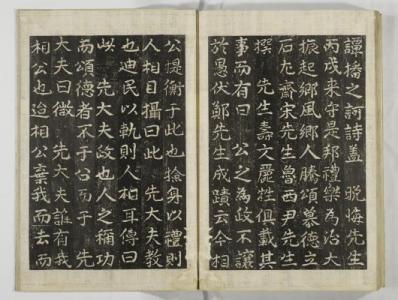 譁播之詞詩盖 晩悔先生
丙戌来守是邦禮樂為治大
振起鄕風鄕人騰頌慕德之
石尤齋宋先生魯西尹先生
撰 先生壽文麗牲俱載其
事而有曰 公之為政不讓
於愚伏鄭先生成蹟云今相
公提衡于此也捡身以禮則
人相目攝曰此 先大夫敎
也迪民以軌則人相耳傳曰
此 先大夫政也人之稱功
而頌德者不于公而于 先
大夫曰微 先大夫誰有我
相公也迨相公棄我而去而